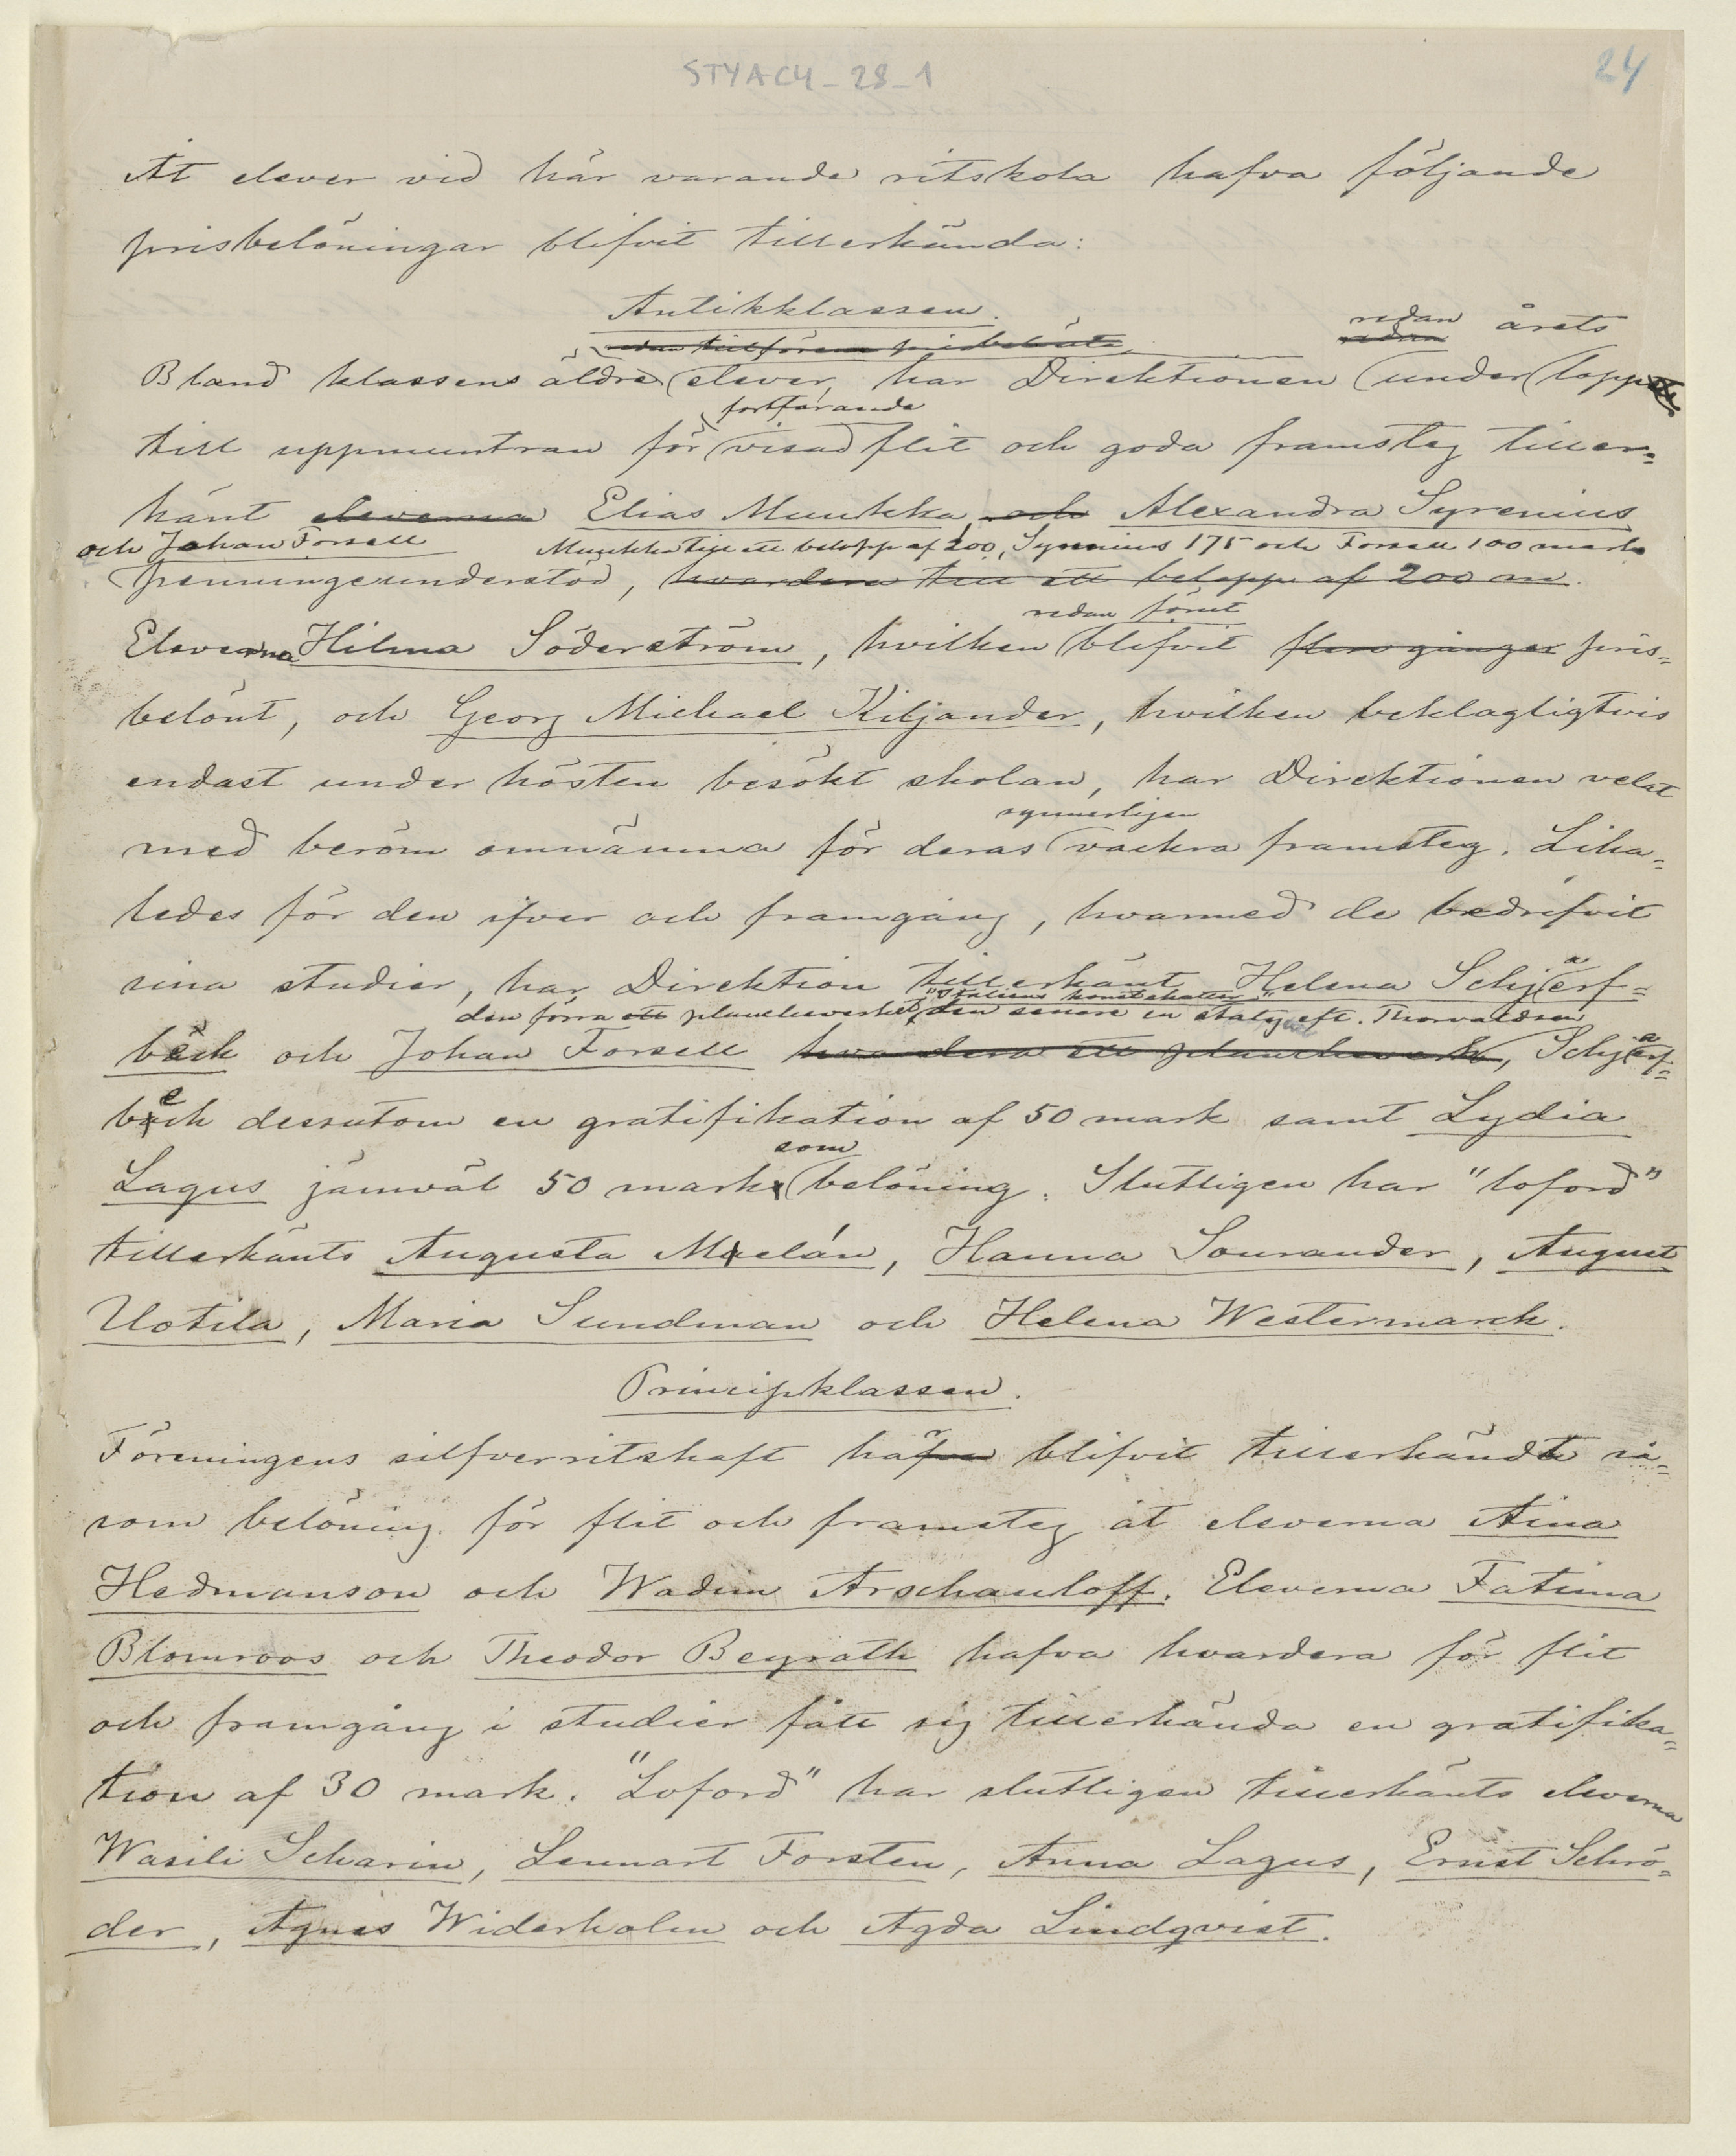 STYACY_28_1
24
At elever vid här varande ritskola hafva följande
prisbelöningar blifvit tillerkända:
Antikklassen.
redan tillförene prisbelönta
redan
redan årets
Bland klassens äldre elever, har Direktionen under lopp
fortfarande
till uppmuntran för visad flit och goda framsteg tiller=
känt eleverna Elias Muukka, och Alexandra Syrenius
och Johan Forsell Muukka till ett belopp af 200, Syrenius 175 och Forsell 100 mark
penningeunderstöd, hvardera till ett belopp af 200 m.
redan förut
Eleverna Hilma Söderström, hvilken blifvit flere gånger pris=
belönt, och Georg Michael Kiljander, hvilken beklagligtvis
endast under hösten besökt skolan, har Direktionen velat
synnerligen
med beröm omnämna för deras vackra framsteg. Lika=
ledes för den ifver och framgång, hvarmed de bedrifvit
a
sina studier, har Direktion tillerkänt Helena Schjerf=
"Italiens konstskatter"
den förra ett planchverket, den senare en staty eft. Thorvaldsen
a
bäck och Johan Forsell hvardera ett planchverk, Schjerf=
e
bäck dessutom en gratifikation af 50 mark samt Lydia
som
Lagus jämväl 50 mark belöning. Slutligen har "loford"
tillerkänts Augusta Melán, Hanna Sourander, August
Uotila, Maria Sundman och Helena Westermarck.
Principklassen.
Föreningens silfverritskaft hafva blifvit tillerkändt så=
som belöning för flit och framsteg åt eleverna Aina
Hedmanson och Wadim Arschauloff. Eleverna Fatima
Blomroos och Theodor Beyrath hafva hvardera för flit
och framgång i studier fått sig tillerkända en gratifika=
tion af 30 mark. "Loford" har slutligen tillerkänts eleverna
Wasili Scharin, Lennart Forsten, Anna Lagus, Ernst Schrö=
der, Agnes Widerholm och Agda Lindqvist.